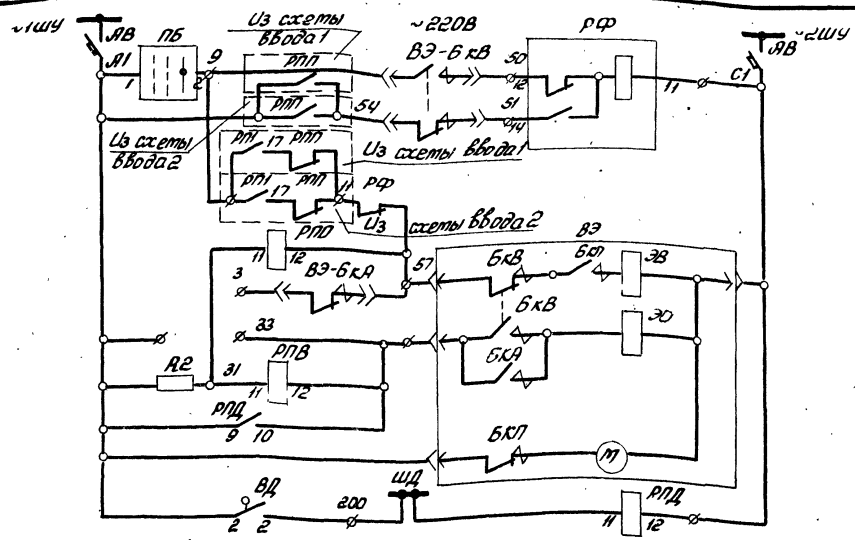 ~1ШУ
АВ
А1
ПБ
1
2
9
Из схемы
ввода 1
РПП
РПП
54
~220В
ВЭ-БкВ
50
12
51
14
РФ
11
С1
АВ
~2ШУ
Из схемы
ввода 2
РП1
17
РПП
Из схемы ввода 1
РП1
17
РПП
11
РФ
Из
схемы ввода 2
РПО
11
12
3
ВЭ-БкА
57
ВЭ
БкВ
БкП
ЭВ
33
БкВ
БкА
ЭО
R2
31
РПВ
11
12
РПД
9
10
БКП
М
ВД
2
2
200
ШД
РПД
11
12